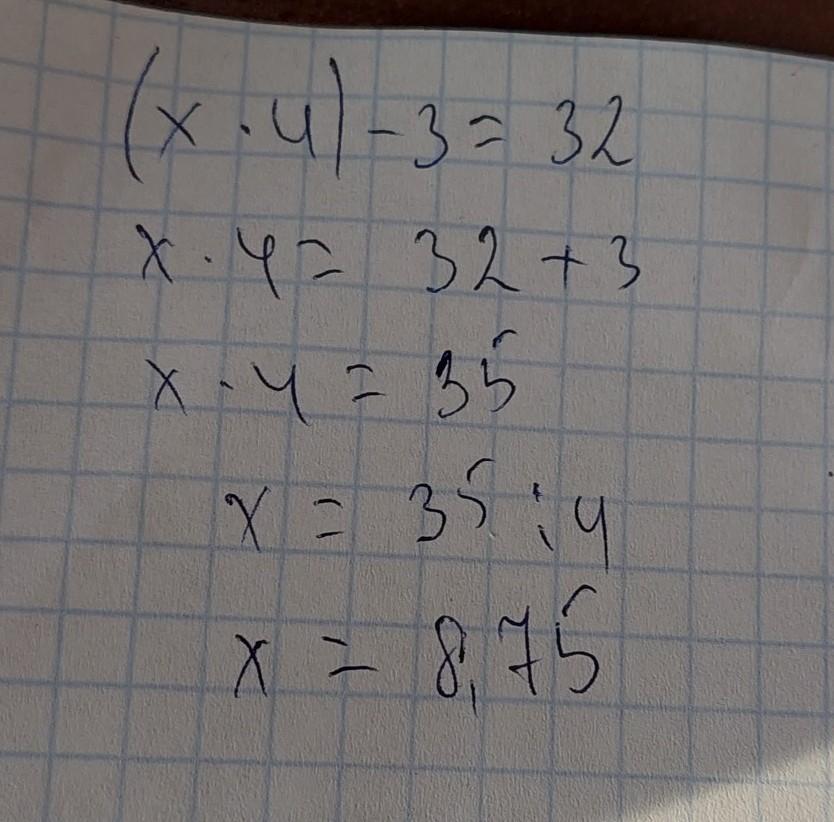 (x · 4) - 3 = 32
x · 4 = 32 + 3
x · 4 = 35
x = 35 : 4
x = 8,75